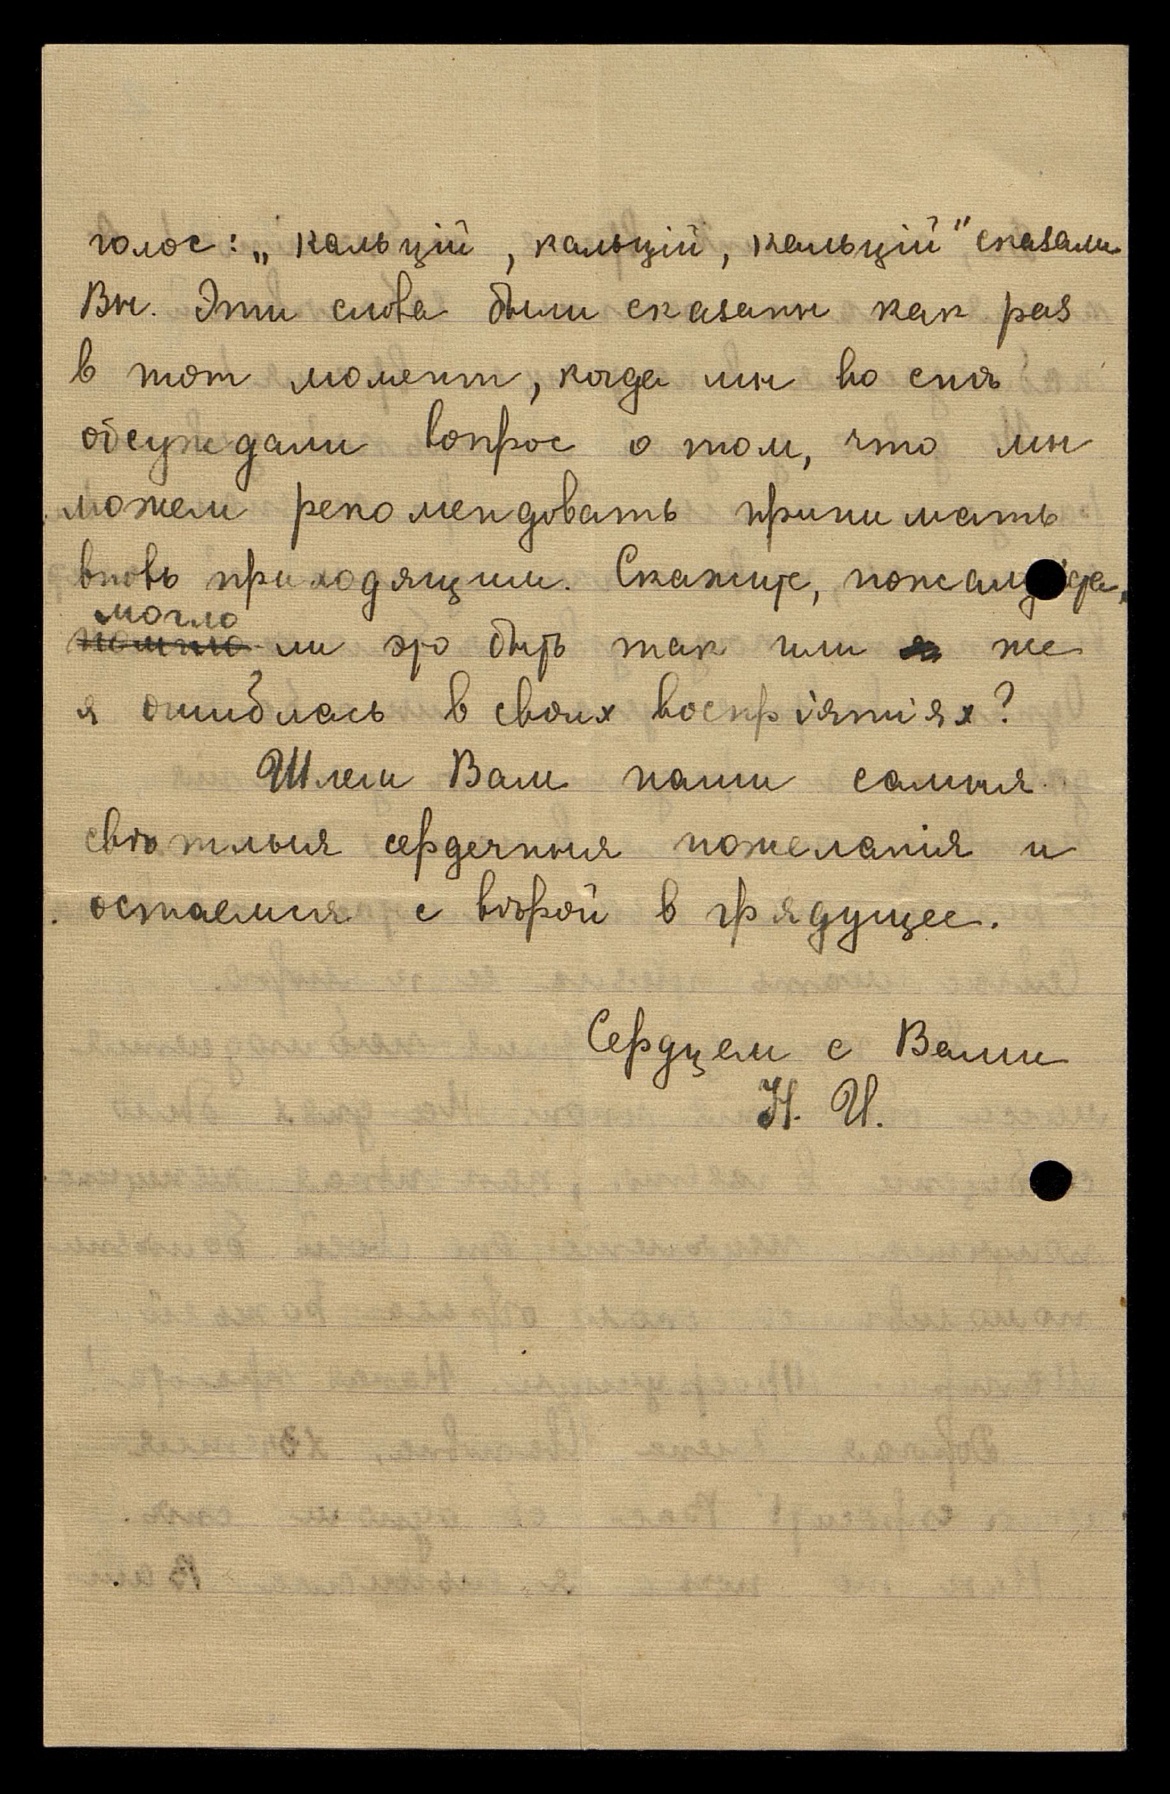 голос: „кальцій, кальцій, кальцій" сказали
Вы. Эти слова были сказаны как раз
в тот момент, когда мы во снѣ
обсуждали вопрос о том, что мы
можем рекомендовать принимать
вновь приходящим. Скажите, пожалуйста,
могло
ли это быть так или же
я ошиблась в своих воспріятіях?
Шлем Вам наши самыя
свѣтлыя сердечныя пожеланія и
остаемся с вѣрой в грядущее.
Сердцем с Вами
Н. И.